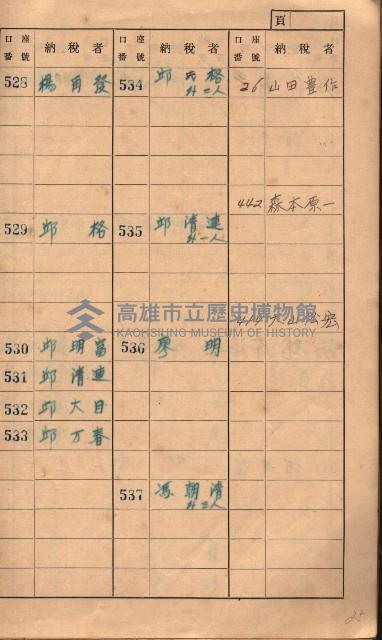 頁
口座番號 納稅者 口座番號 納稅者 口座番號 納稅者
528 楊再發
529 邱格
530 邱明富
531 邱清連
532 邱大目
533 邱万春
534 邱氏格
外二人
535 邱清連
外一人
536 廖明
537 馮朝清
外三人
26 山田豊作
442 森本原一
高雄市立歷史博物館
KAOHSIUNG MUSEUM OF HISTORY
25